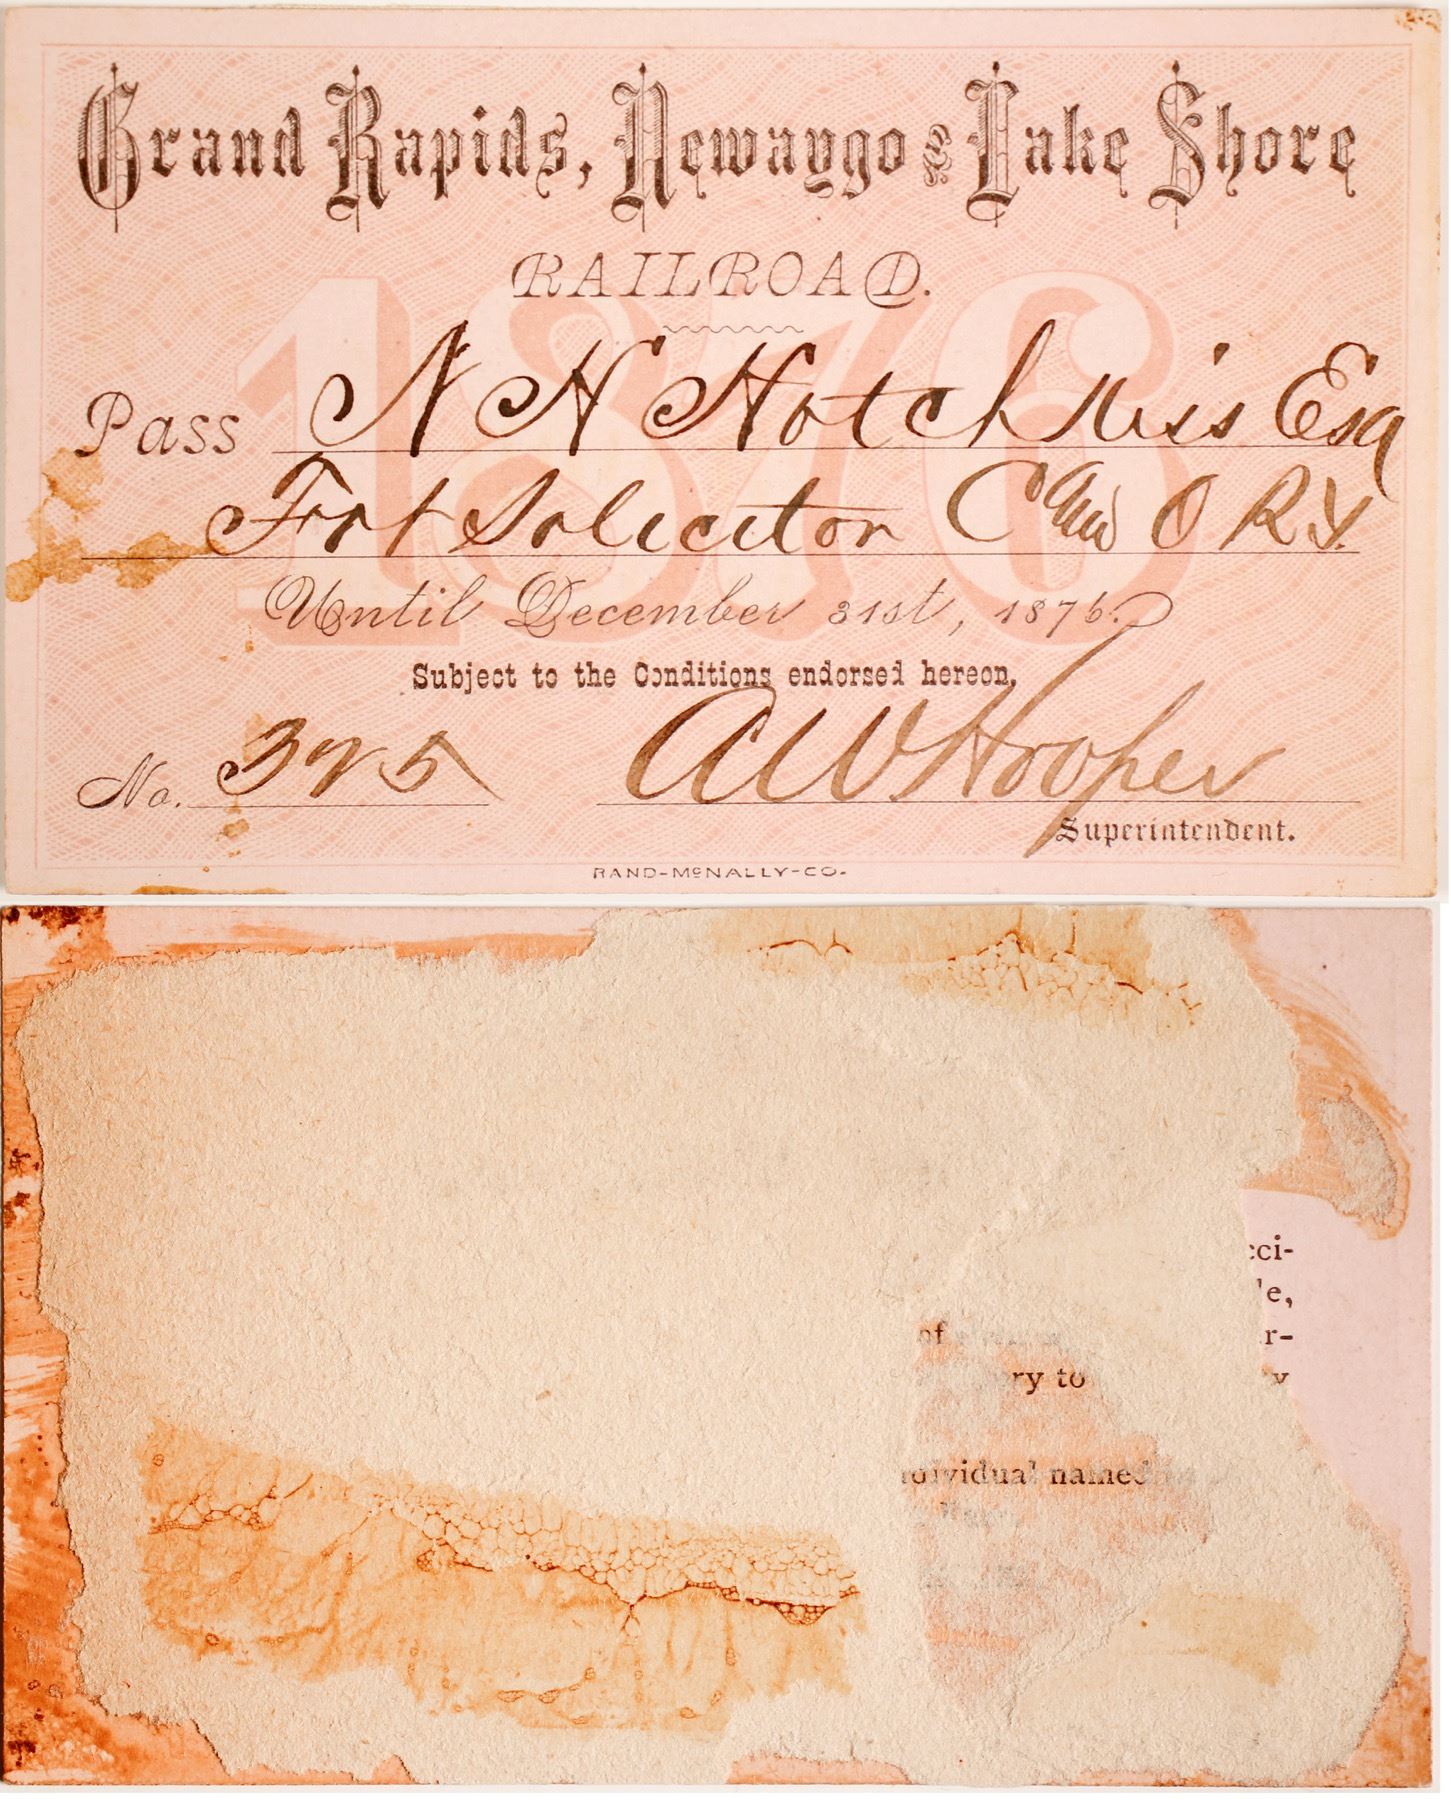 Grand Rapids, Newaygo & Lake Shore
RAILROAD.
1876
Pass N H Hotchkiss Esq
Frt Solicitor C and O RY.
Until December 31st, 1876.
Subject to the Conditions endorsed hereon.
No. 325 A W Hooper
Superintendent.
RAND-McNALLY-CO.
cci-
e,
of r-
ry to y
ndividual named